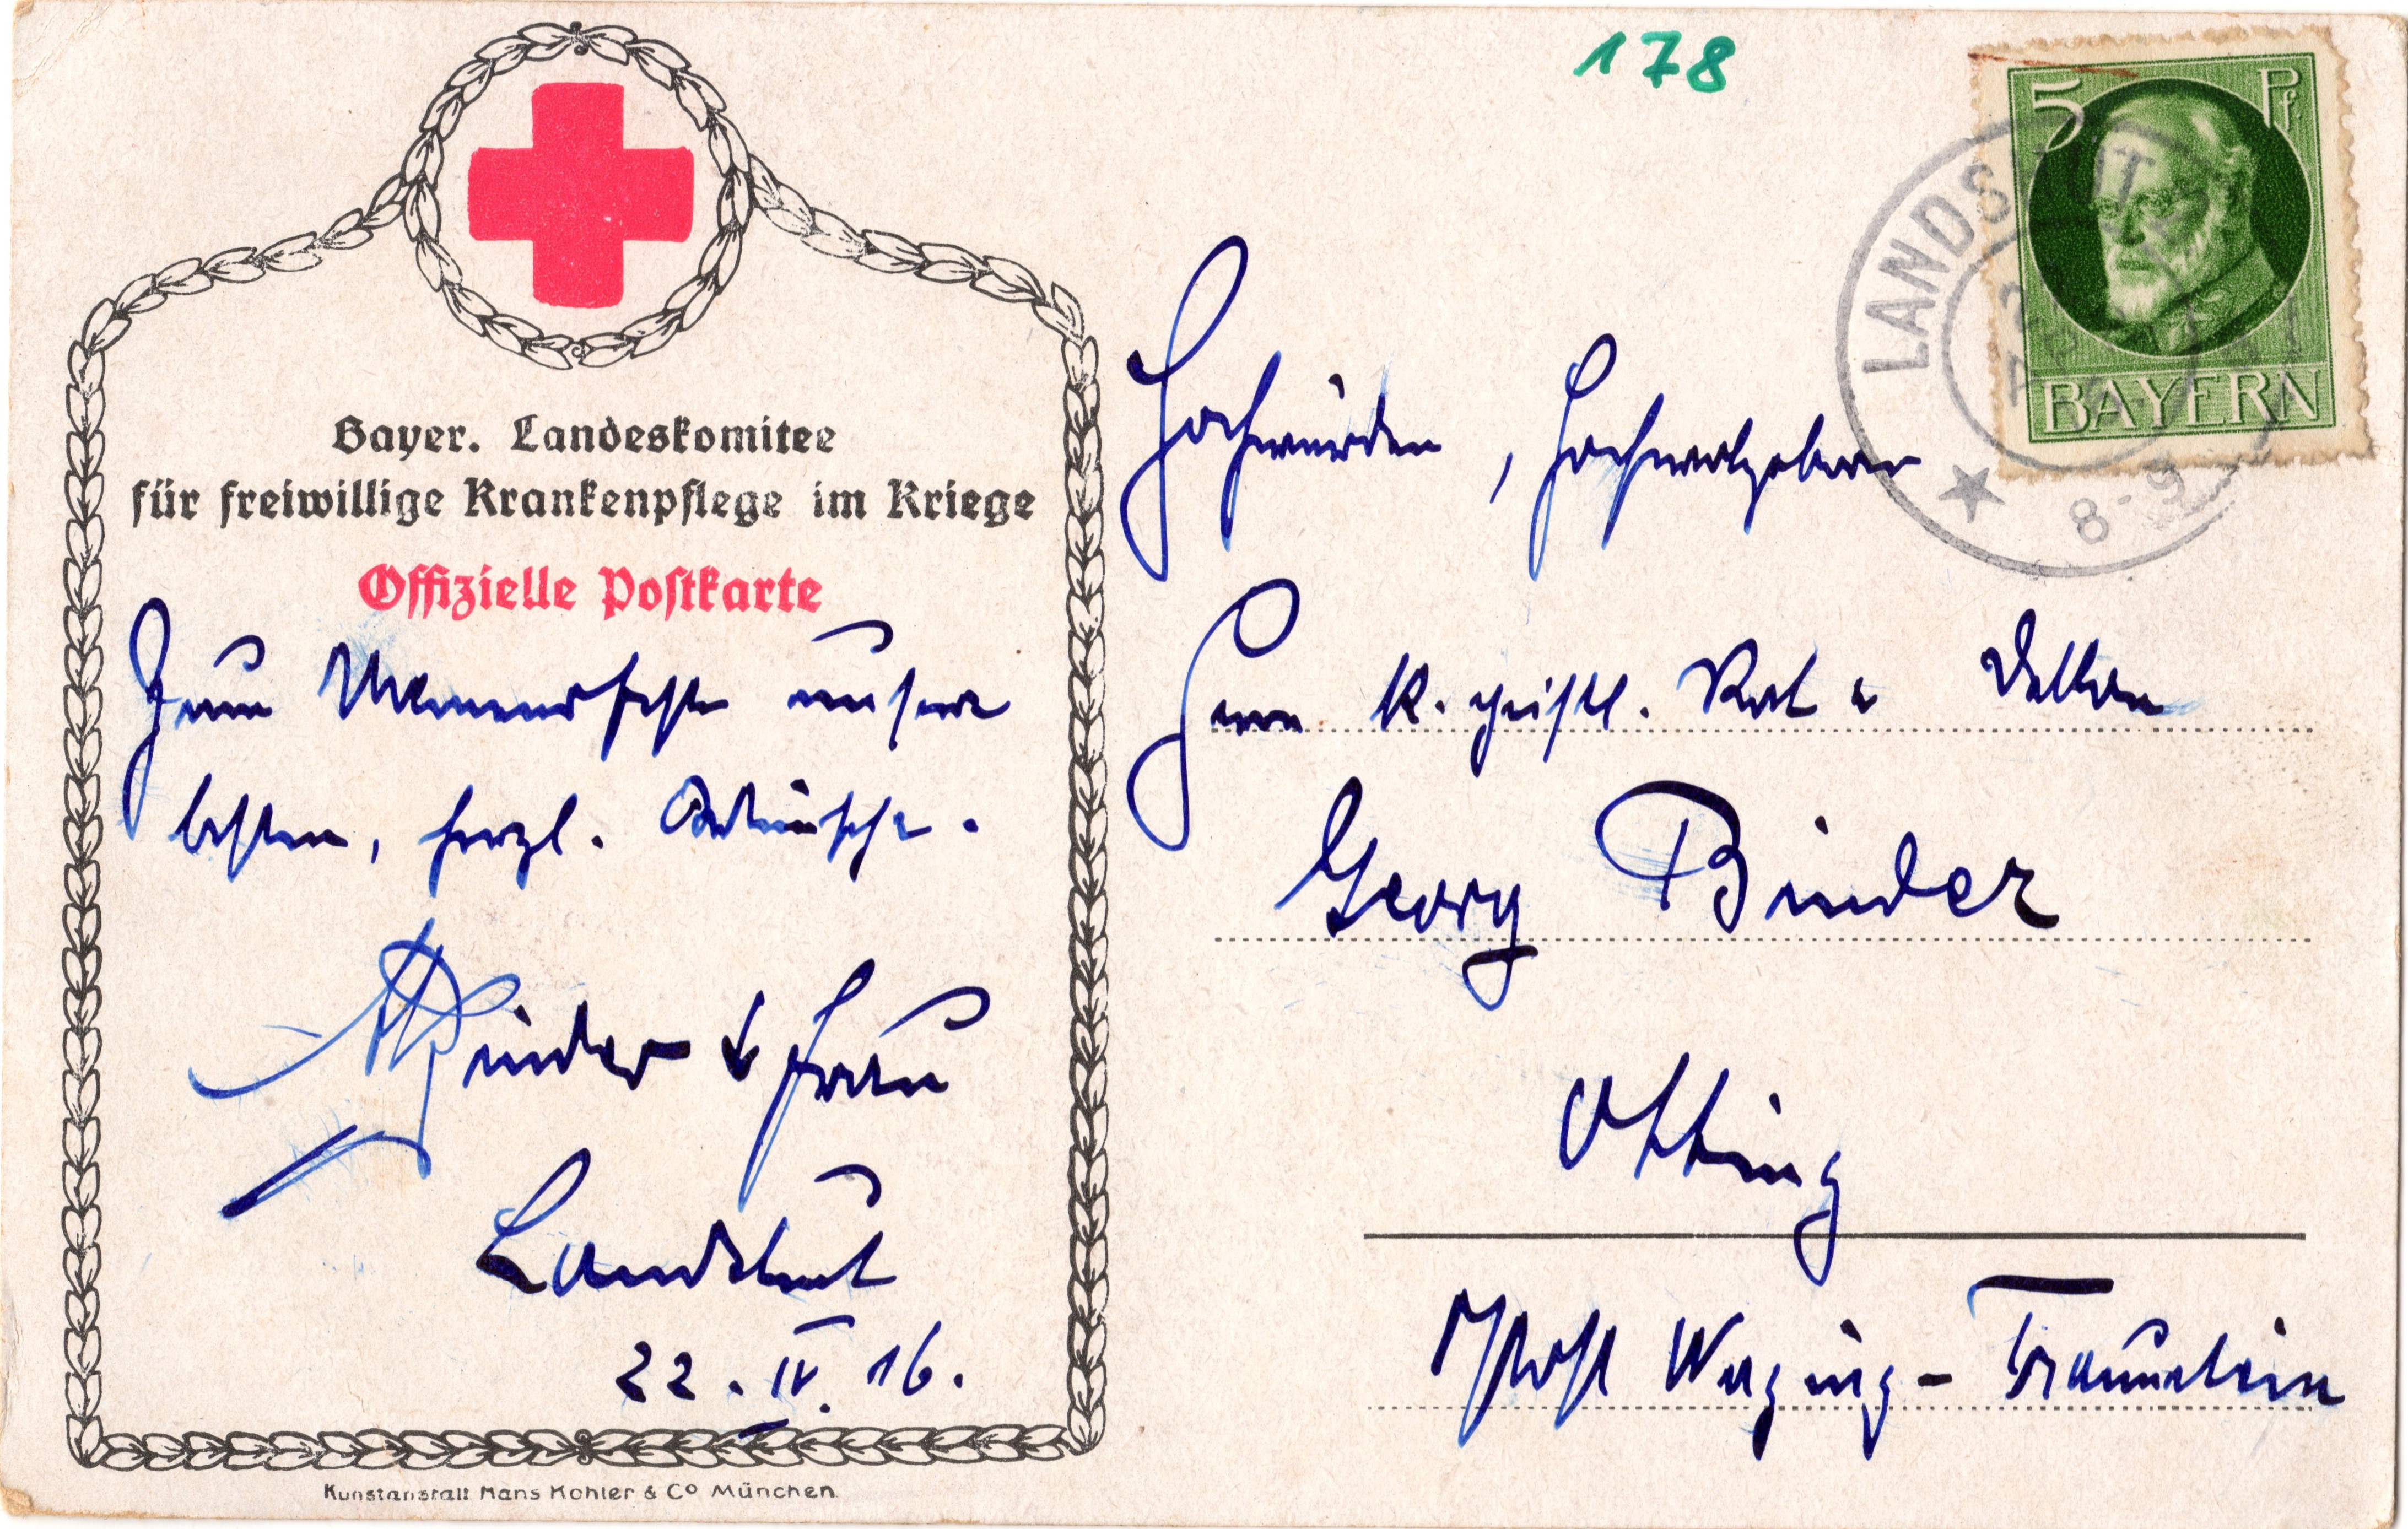 178
5 Pf.
BAYERN
LANDSHUT
8-9
Bayer. Landeskomitee
für freiwillige Krankenpflege im Kriege
Offizielle Postkarte
Zum Namensfeste unsere
besten, herzl. Glückwünsche.
Binder & Frau
Landshut
22. IV. 16.
Kunstanstalt Hans Kohler & Co München
Hochwürden, Hochwolgeboren
Herrn K. geistl. Rat u Dekan
Georg Binder
Otting
Post Waging - Traunstein